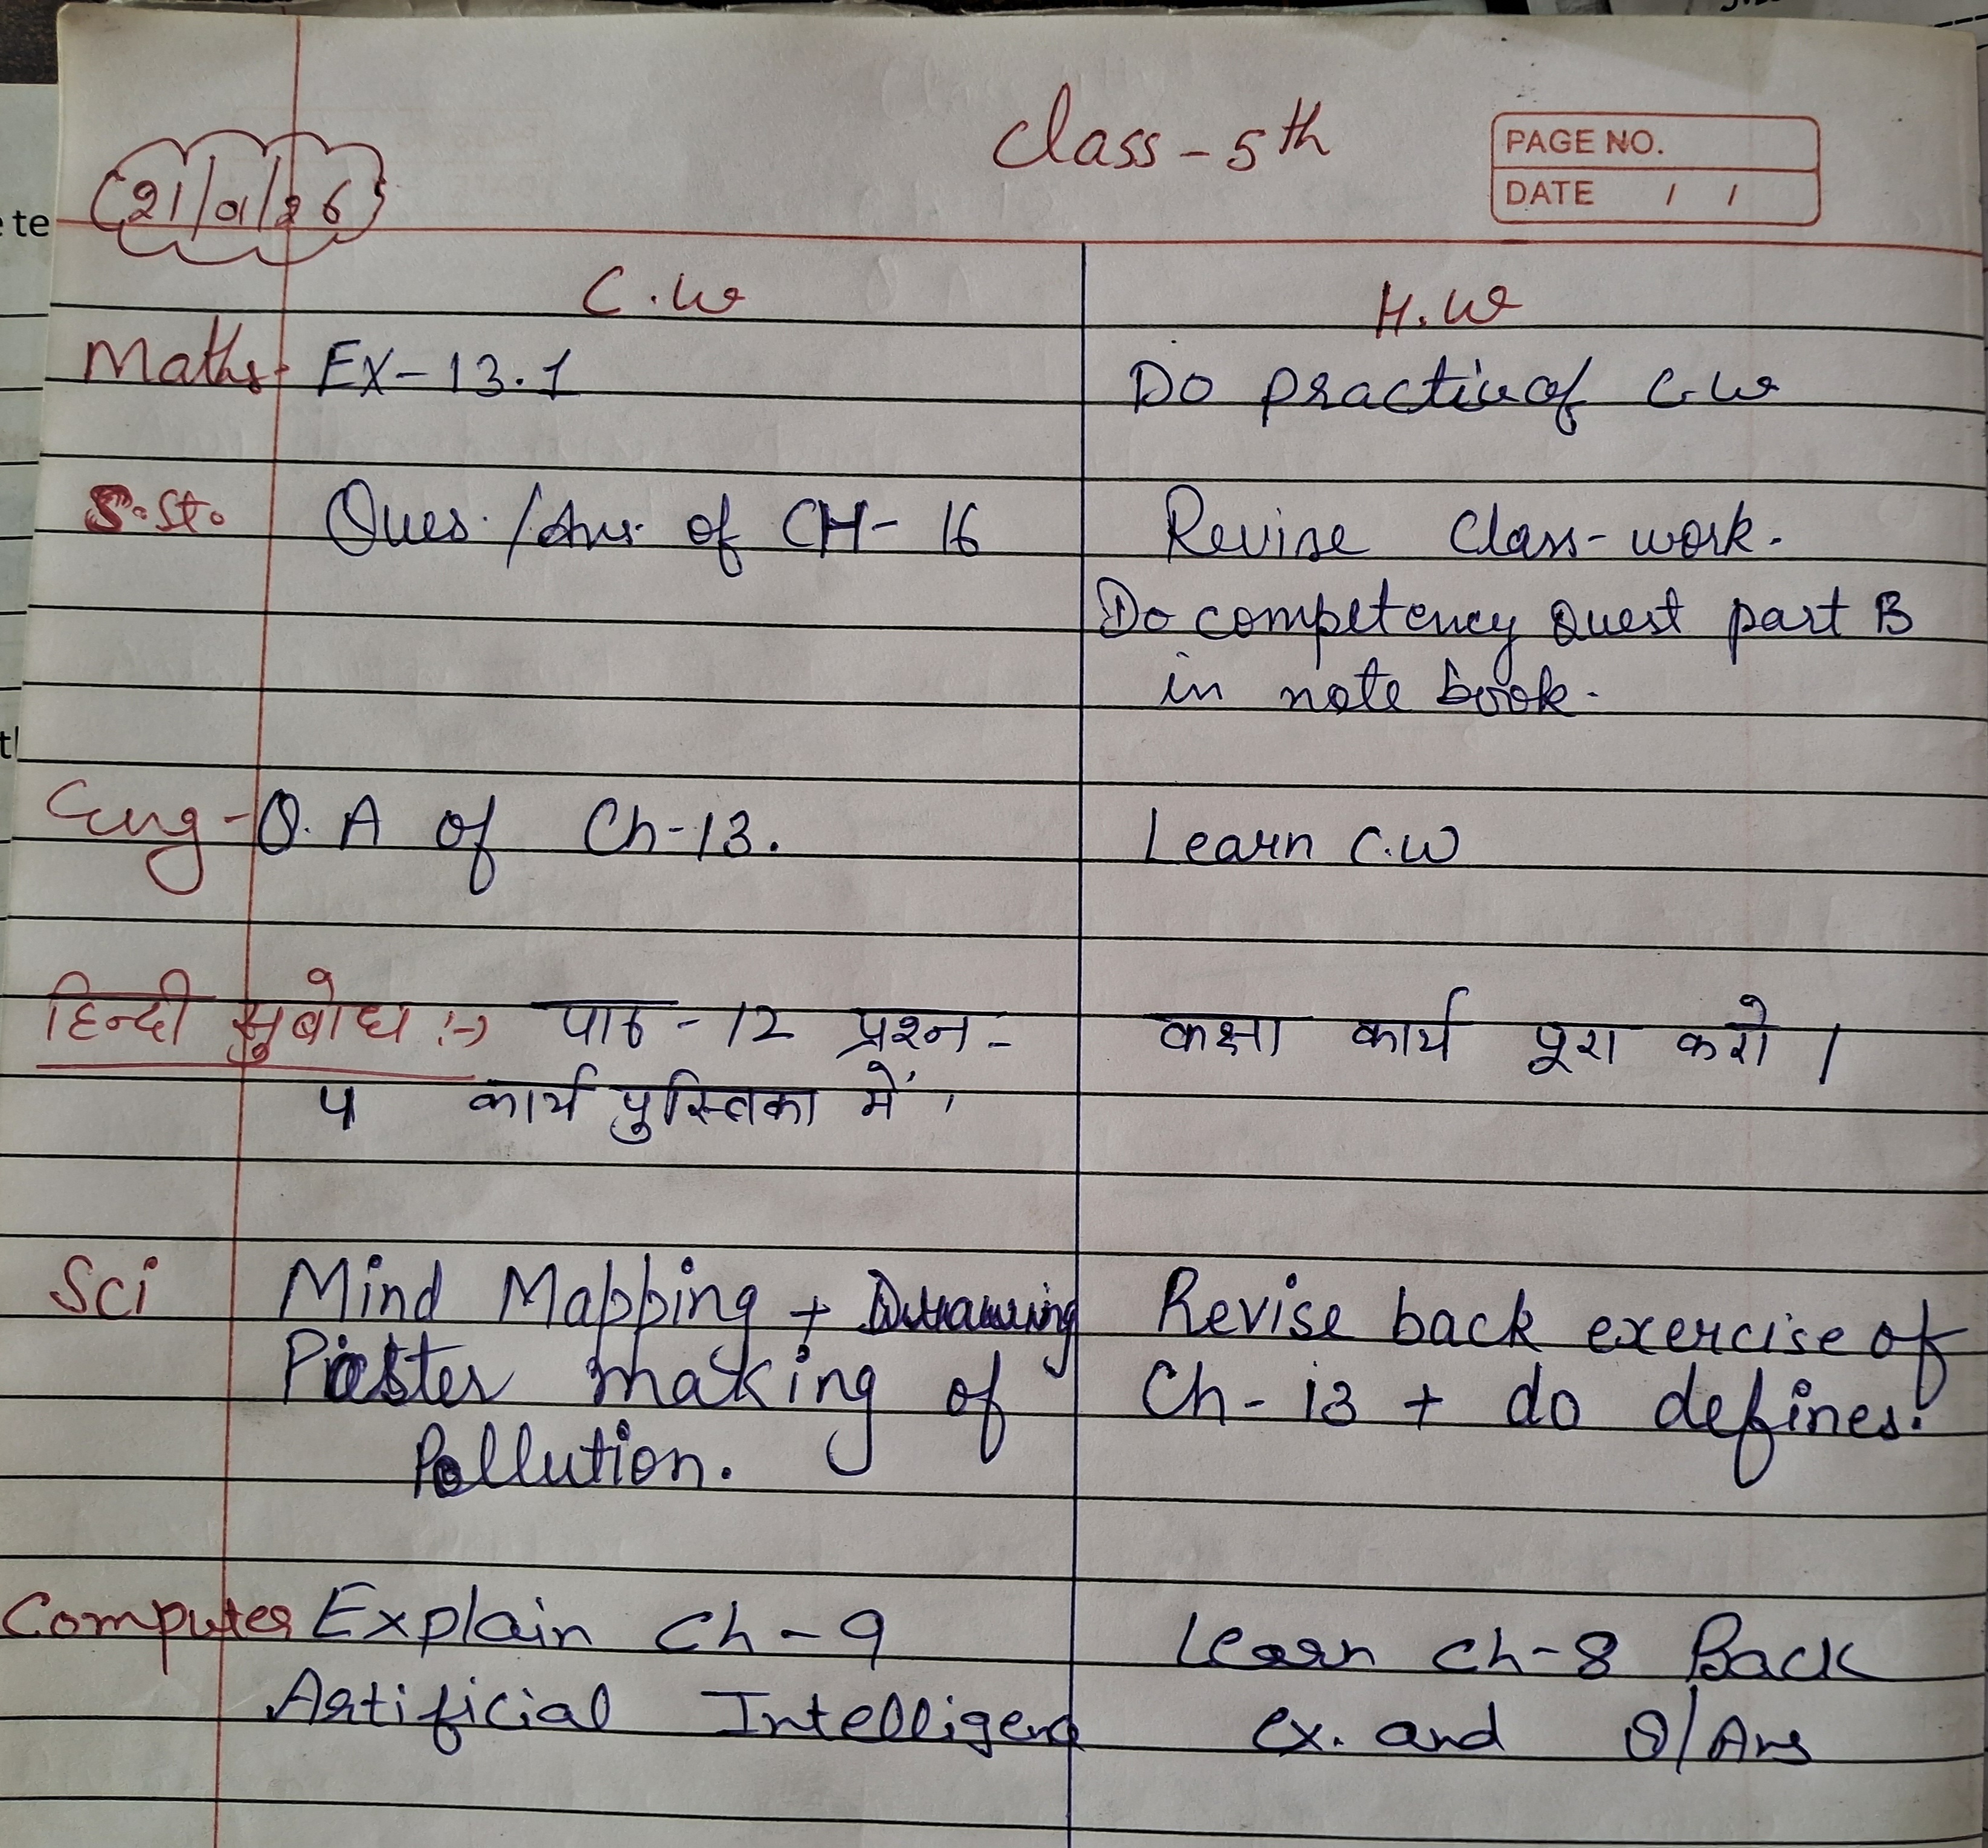 Class - 5th
PAGE NO.
DATE / /
21/01/26
te
C.W H.W
Maths- EX-13.1 Do practice of C.W
S.St. Ques./Ans. of CH- 16 Revise Class-work.
Do competency Quest part B
in note book.
Eng- Q.A of Ch-13. Learn C.W
हिन्दी सुबोध :-> पाठ -12 प्रश्न- कक्षा कार्य पूरा करो ।
५ कार्य पुस्तिका में ,
Sci Mind Mapping + Drawing Revise back exercise of
Poster making of Ch- 13 + do defines.
Pollution.
Computer Explain Ch-9 Learn Ch-8 Back
Artificial Intelligence ex. and Q/Ans